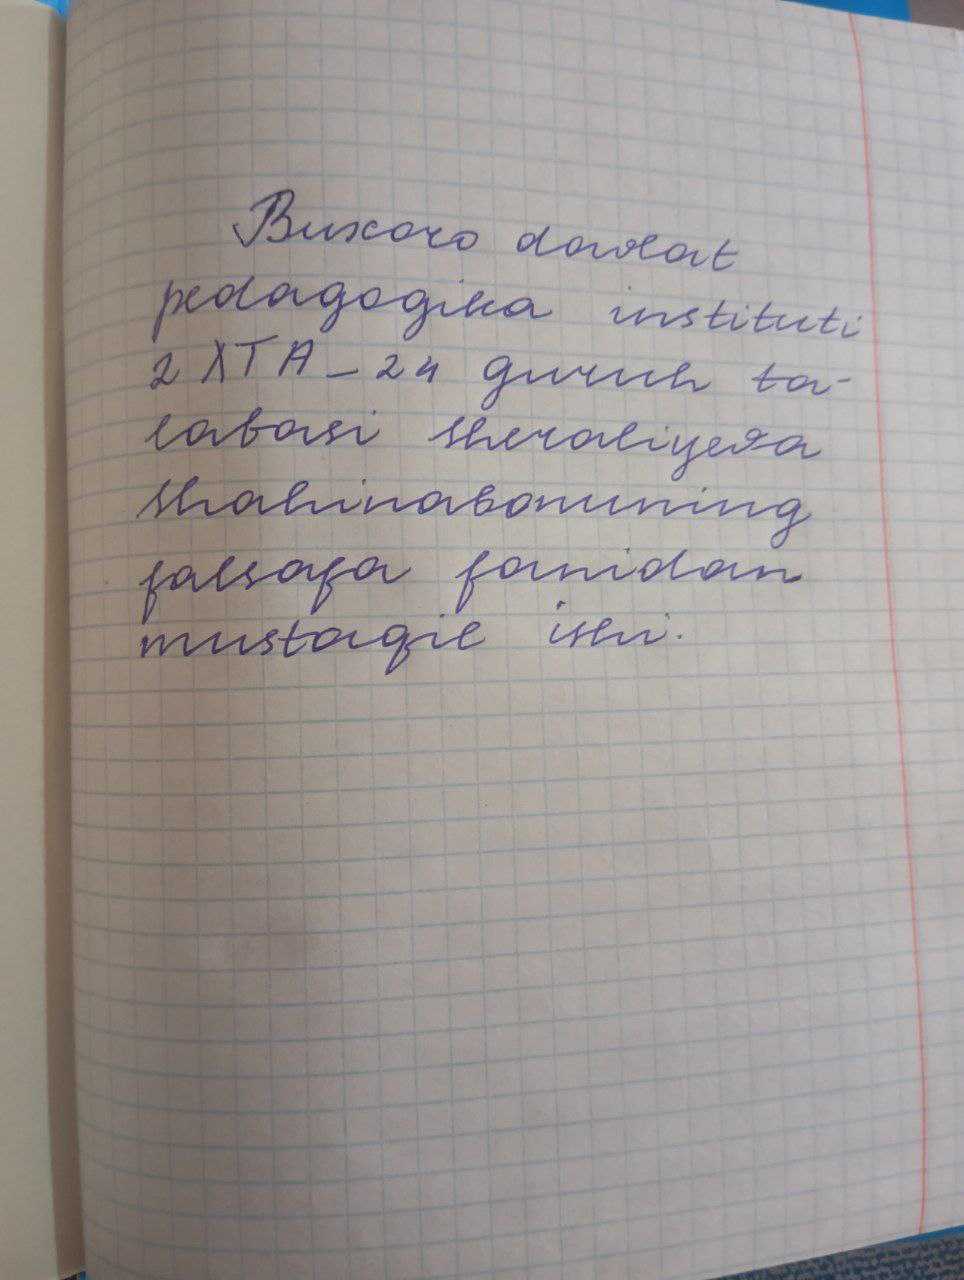 Buxoro davlat
pedagogika instituti
2 XTA-24 guruh ta-
labasi Sheraliyeva
Shahinabonuning
falsafa fanidan
mustaqil ishi.